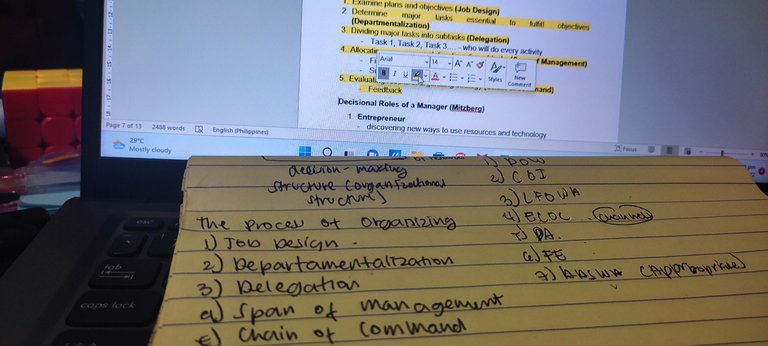 1. Examine plans and objectives (Job Design)
2. Determine major tasks essential to fulfill objectives
(Departmentalization)
3. Dividing major tasks into subtasks (Delegation)
- Task 1, Task 2, Task 3.... - who will do every activity
4. Allocatin
Management)
5. Evaluat
mand)
- Feedback
Arial
14
B I U
Styles
New
Comment
Decisional Roles of a Manager (Mitzberg)
1. Entrepreneur
- discovering new ways to use resources and technology
Page 7 of 13 2488 words English (Philippines)
Focus
29°C
Mostly cloudy
esc
tab
caps lock
decision-making
structure (organizational
structure)
The process of Organizing
1) Job Design
2) Departamentalization
3) Delegation
a) Span of management
E) Chain of Command
1) DOW
2) CDJ
3) LFOWA
4) ECOC
6) FE